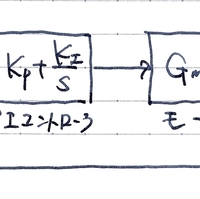 Kp + KI/S Gm
Iコントローラ モー